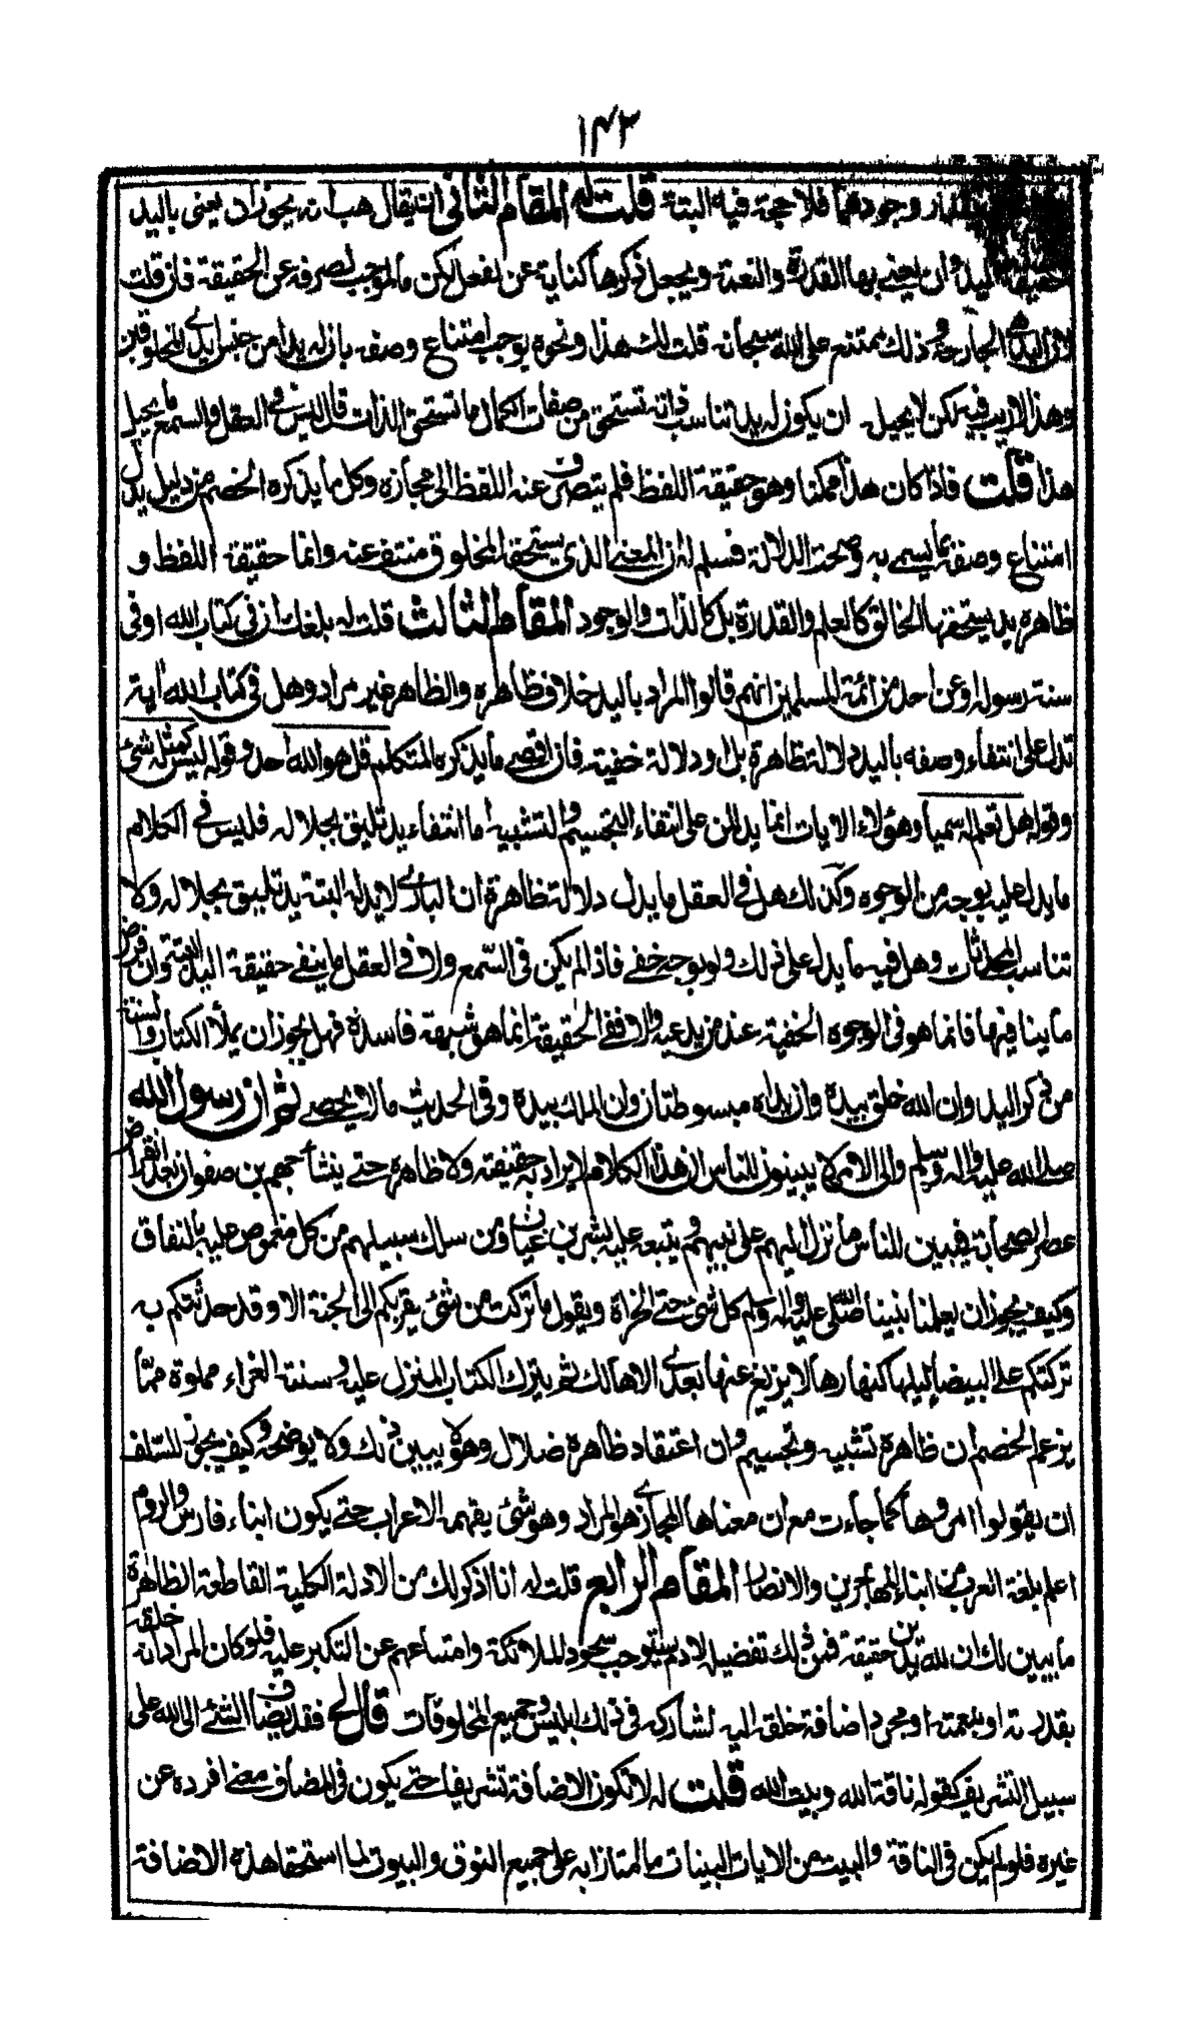 ١٤٢
وجودهما فلا حجة فيه البتة قلت له المقام الثانی ان يقال هب انه يجوز ان يعنى باليد
حقيقة اليد وان يعنى بها القدرة والنعمة ويجعل ذكرها كناية عن الفعل لكن ما الموجب لصرفه عن الحقيقة فان قلت
لان اليد هى الجارحة وذلك ممتنع على الله سبحانه قلت لك هذا ونحوه يوجب امتناع وصفه بان له يدا من جنس ايدى المخلوقين
وهذا لا ريب فيه لكن لا يحيل ان يكون له يد تناسب ذاته تستحق من صفات الكمال ما تستحق الذات قال ليس فى العقل والسمع ما يحيل
هذا قلت فاذا كان هذا ممكنا وهو حقيقة اللفظ فلم يتصرف عنه اللفظ الى مجازه وكل ما يذكره الخصم من دليل يدل
امتناع وصفه بما يسمى به وصحت الدلالة فسلم له ان المعنى الذى يستحقه المخلوق منتف عنه وانما حقيقة اللفظ و
ظاهره يد يستحقها الخالق كالعلم والقدرة بل كالذات والوجود المقام الثالث قلت له بلغك ان فى كتاب الله او فى
سنة رسوله او عن احد من ائمة المسلمين انهم قالوا المراد باليد خلاف ظاهره والظاهر غير مراد وهل فى كتاب الله آية
تدل على انتفاء وصفه باليد دلالة ظاهرة بل او دلالة خفية فان اقصى ما يذكره المتكلم قل هو الله احد وقوله ليس كمثله شئ
وقوله هل تعلم له سميا وهؤلاء الايات انما يدللن على انتفاء التجسيم والتشبيه اما انتفاء يد تليق بجلاله فليس فى الكلام
ما يدل عليه بوجه من الوجوه وكذلك هل فى العقل ما يدل دلالة ظاهرة ان البارى لا يد له البتة يد تليق بجلاله ولا
تناسب المحدثات وهل فيه ما يدل على ذلك ولو بوجه خفى فاذا لم يكن فى السمع ولا فى العقل ما ينفى حقيقة اليد البتة وان فرض
ما ينافيها فانما هو فى الوجوه الخفية عند من يدعيه والا ففى الحقيقة انما هو شبهة فاسدة فهل يجوز ان يملأ الكتاب والسنة
من ذكر اليد وان الله خلق بيده وان يداه مبسوطتان وان الملك بيده وفى الحديث ما لا يحصى ثم ان رسول الله
صلى الله عليه واله وسلم واولى الامر لا يبينون للناس ان هذا الكلام لا يراد به حقيقته ولا ظاهره حتى ينشأ جهم بن صفوان بعد انقراض
عصر الصحابة فيبين للناس ما نزل اليهم على نبيهم ويتبعه عليه بشر بن غياث ومن سلك سبيلهم من كل مغموص عليه بالنفاق
وكيف يجوز ان يعلمنا نبينا صلى الله عليه واله وسلم كل شئ حتى الخراة ويقول ما تركت من شئ يقربكم الى الجنة الا وقد حدثتكم به
تركتكم على البيضاء ليلها كنهارها لا يزيغ عنها بعدى الا هالك ثم يترك الكتاب المنزل عليه وسنته الغراء مملوة مما
يزعم الخصم ان ظاهره تشبيه وتجسيم وان اعتقاد ظاهره ضلال وهو لا يبين ذلك ولا يوضحه وكيف يجوز للسلف
ان يقولوا امروها كما جاءت مع ان معناها المجازى هو المراد وهو شئ يفهمه الاعراب حتى يكون ابناء فارس والروم
اعلم بلغة العرب من ابناء المهاجرين والانصار المقام الرابع قلت له انا اذكر لك من الادلة الكلية القاطعة الظاهرة
ما يبين لك ان لله يدين حقيقة فمن ذلك تفضيله لادم يستوجب سجود الملائكة وامتناعهم عن التكبر عليه فلو كان المراد انه خلقه
بقدرته او بنعمته او مجرد اضافة خلقه اليه لشاركه فى ذلك ابليس وجميع المخلوقات قال لى فقد يضاف الشئ الى الله على
سبيل التشريف كقوله ناقة الله وبيت الله قلت له لا تكون الاضافة تشريفا حتى يكون فى المضاف معنى افرده عن
غيره فلو لم يكن فى الناقة والبيت من الايات البينات ما امتازا به على جميع النوق والبيوت لما استحقا هذه الاضافة